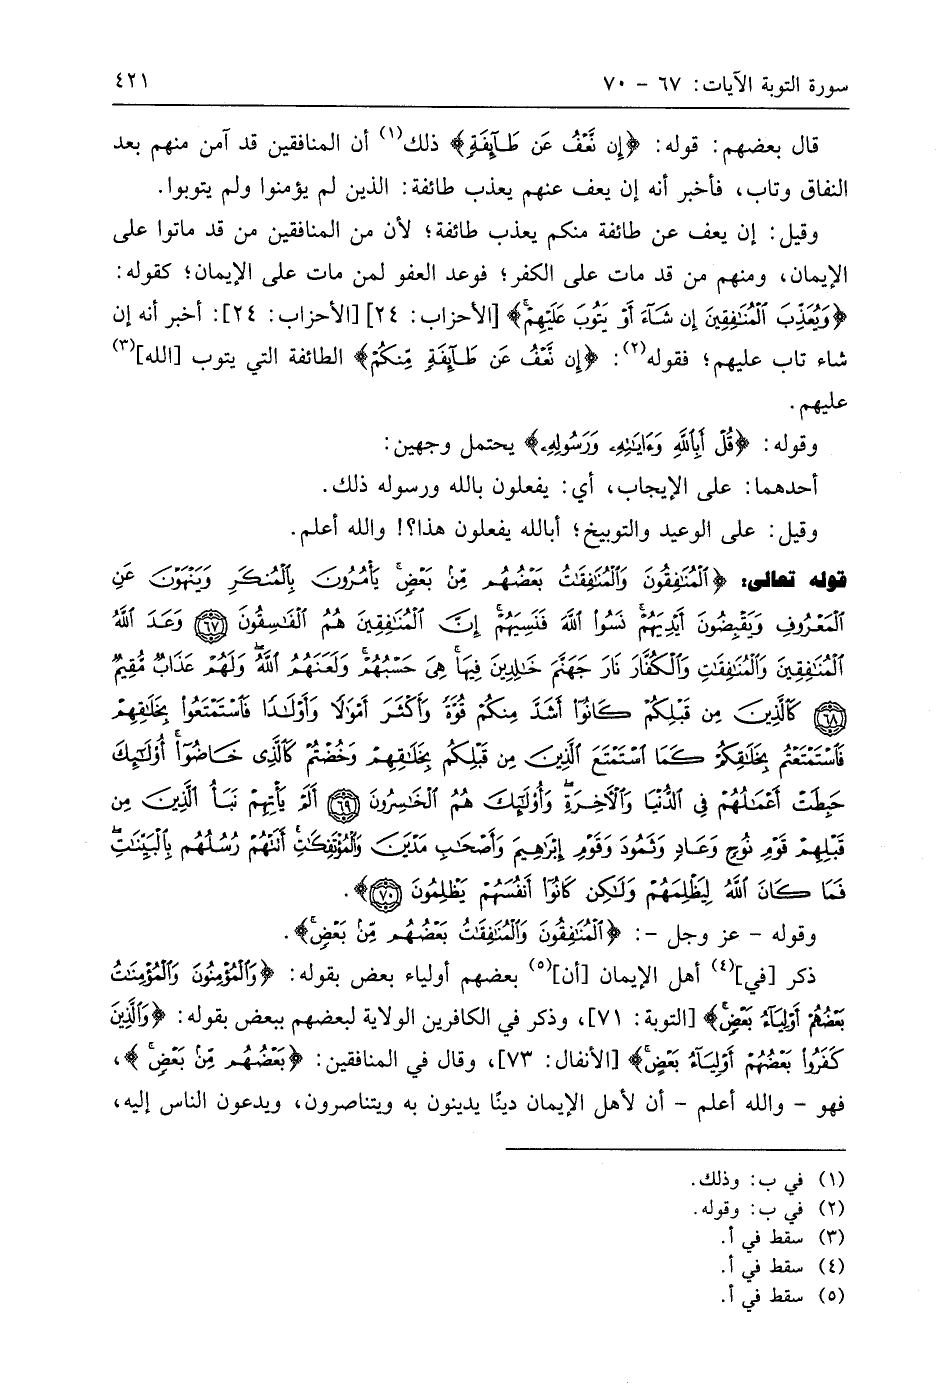 سورة التوبة الآيات: ٦٧ - ٧٠ ٤٢١
قال بعضهم: قوله: ﴿إِن نَّعْفُ عَن طَآئِفَةٍ﴾ ذلك(١) أن المنافقين قد آمن منهم بعد
النفاق وتاب، فأخبر أنه إن يعف عنهم يعذب طائفة: الذين لم يؤمنوا ولم يتوبوا.
وقيل: إن يعف عن طائفة منكم يعذب طائفة؛ لأن من المنافقين من قد ماتوا على
الإيمان، ومنهم من قد مات على الكفر؛ فوعد العفو لمن مات على الإيمان؛ كقوله:
﴿وَيُعَذِّبَ ٱلْمُنَٰفِقِينَ إِن شَآءَ أَوْ يَتُوبَ عَلَيْهِمْۚ﴾ [الأحزاب: ٢٤] [الأحزاب: ٢٤]: أخبر أنه إن
شاء تاب عليهم؛ فقوله(٢): ﴿إِن نَّعْفُ عَن طَآئِفَةٍ مِّنكُمْ﴾ الطائفة التي يتوب [الله](٣)
عليهم.
وقوله: ﴿قُلْ أَبِٱللَّهِ وَءَايَٰتِهِۦ وَرَسُولِهِۦ﴾ يحتمل وجهين:
أحدهما: على الإيجاب، أي: يفعلون بالله ورسوله ذلك.
وقيل: على الوعيد والتوبيخ؛ أبالله يفعلون هذا؟! والله أعلم.
قوله تعالى: ﴿ٱلْمُنَٰفِقُونَ وَٱلْمُنَٰفِقَٰتُ بَعْضُهُم مِّنۢ بَعْضٍۚ يَأْمُرُونَ بِٱلْمُنكَرِ وَيَنْهَوْنَ عَنِ
ٱلْمَعْرُوفِ وَيَقْبِضُونَ أَيْدِيَهُمْۚ نَسُوا۟ ٱللَّهَ فَنَسِيَهُمْۚ إِنَّ ٱلْمُنَٰفِقِينَ هُمُ ٱلْفَٰسِقُونَ ٦٧ وَعَدَ ٱللَّهُ
ٱلْمُنَٰفِقِينَ وَٱلْمُنَٰفِقَٰتِ وَٱلْكُفَّارَ نَارَ جَهَنَّمَ خَٰلِدِينَ فِيهَاۚ هِىَ حَسْبُهُمْۚ وَلَعَنَهُمُ ٱللَّهُۖ وَلَهُمْ عَذَابٌ مُّقِيمٌ
٦٨ كَٱلَّذِينَ مِن قَبْلِكُمْ كَانُوٓا۟ أَشَدَّ مِنكُمْ قُوَّةً وَأَكْثَرَ أَمْوَٰلًا وَأَوْلَٰدًا فَٱسْتَمْتَعُوا۟ بِخَلَٰقِهِمْ
فَٱسْتَمْتَعْتُم بِخَلَٰقِكُمْ كَمَا ٱسْتَمْتَعَ ٱلَّذِينَ مِن قَبْلِكُم بِخَلَٰقِهِمْ وَخُضْتُمْ كَٱلَّذِى خَاضُوٓا۟ۚ أُو۟لَٰٓئِكَ
حَبِطَتْ أَعْمَٰلُهُمْ فِى ٱلدُّنْيَا وَٱلْءَاخِرَةِۖ وَأُو۟لَٰٓئِكَ هُمُ ٱلْخَٰسِرُونَ ٦٩ أَلَمْ يَأْتِهِمْ نَبَأُ ٱلَّذِينَ مِن
قَبْلِهِمْ قَوْمِ نُوحٍ وَعَادٍ وَثَمُودَ وَقَوْمِ إِبْرَٰهِيمَ وَأَصْحَٰبِ مَدْيَنَ وَٱلْمُؤْتَفِكَٰتِۚ أَتَتْهُمْ رُسُلُهُم بِٱلْبَيِّنَٰتِۖ
فَمَا كَانَ ٱللَّهُ لِيَظْلِمَهُمْ وَلَٰكِن كَانُوٓا۟ أَنفُسَهُمْ يَظْلِمُونَ ٧٠﴾.
وقوله - عز وجل -: ﴿ٱلْمُنَٰفِقُونَ وَٱلْمُنَٰفِقَٰتُ بَعْضُهُم مِّنۢ بَعْضٍۚ﴾.
ذكر [في](٤) أهل الإيمان [أن](٥) بعضهم أولياء بعض بقوله: ﴿وَٱلْمُؤْمِنُونَ وَٱلْمُؤْمِنَٰتُ
بَعْضُهُمْ أَوْلِيَآءُ بَعْضٍۚ﴾ [التوبة: ٧١]، وذكر في الكافرين الولاية لبعضهم ببعض بقوله: ﴿وَٱلَّذِينَ
كَفَرُوا۟ بَعْضُهُمْ أَوْلِيَآءُ بَعْضٍۚ﴾ [الأنفال: ٧٣]، وقال في المنافقين: ﴿بَعْضُهُم مِّنۢ بَعْضٍۚ﴾،
فهو - والله أعلم - أن لأهل الإيمان دينًا يدينون به ويتناصرون، ويدعون الناس إليه،
(١) في ب: وذلك.
(٢) في ب: وقوله.
(٣) سقط في أ.
(٤) سقط في أ.
(٥) سقط في أ.